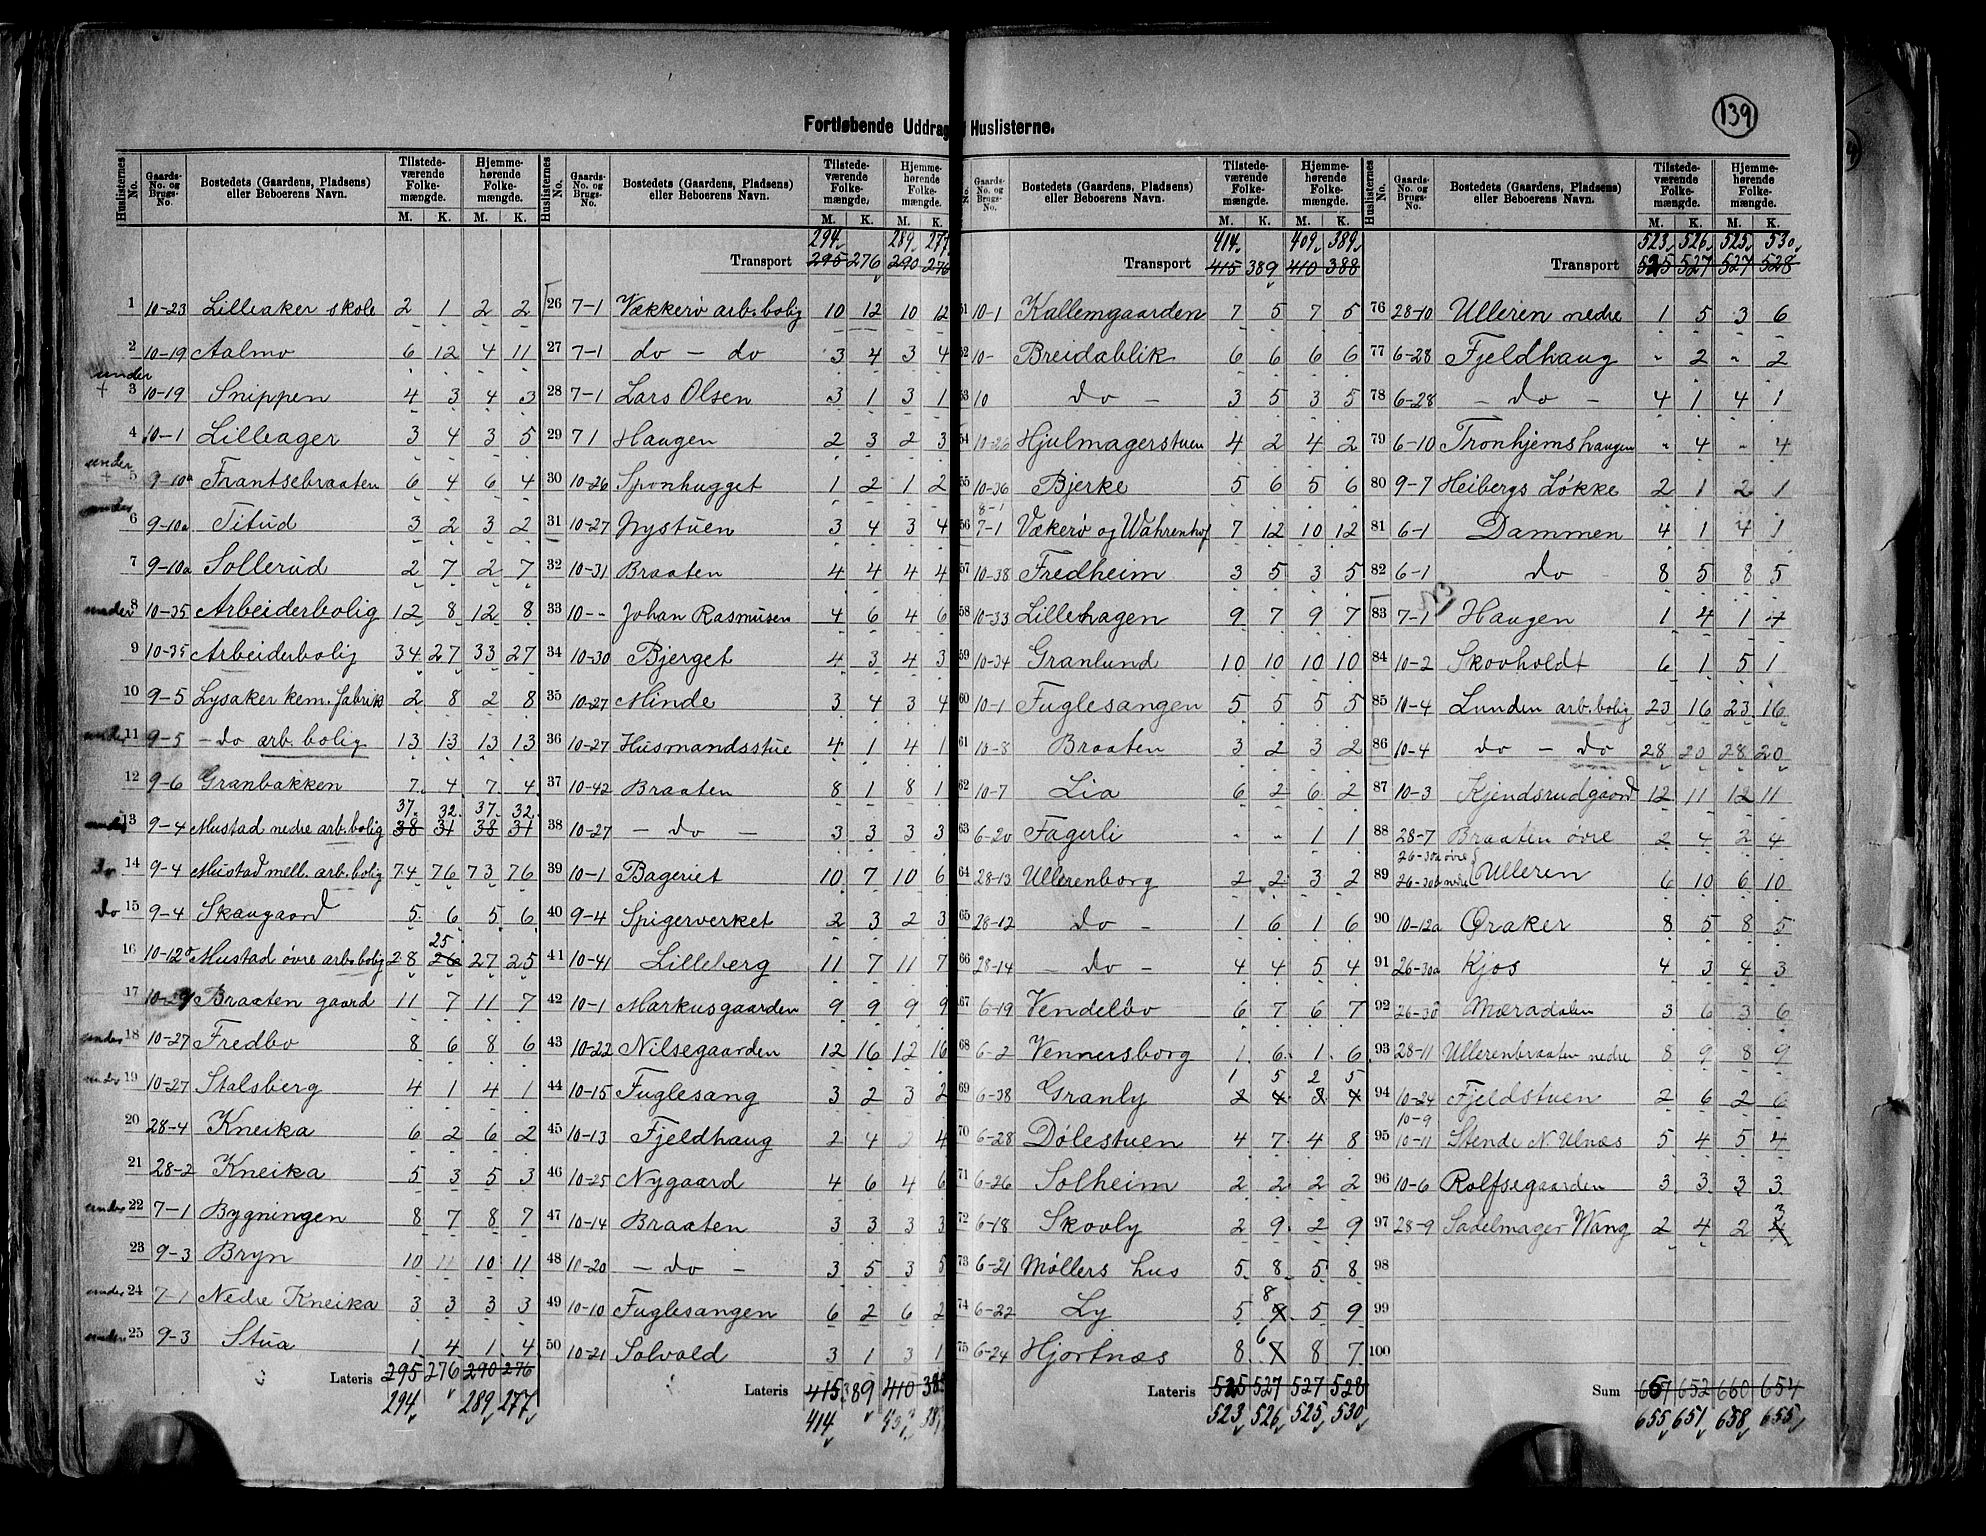 139
Fortløbende Uddrag Huslisterne.
Huslisternes No. | Gaards-No. og Brugs-No. | Bostedets (Gaardens, Pladsens) eller Beboerens Navn. | Tilstedeværende Folkemængde. M. K. | Hjemmehørende Folkemængde. M. K.
1 10-23 Lilleaker skole 2 1 2 2
2 10-19 Aalmo 6 12 4 11
under + 3 10-19 Snippen 4 3 4 3
4 10-1 Lilleager 3 4 3 5
under + 5 9-10a Frantsebraaten 6 4 6 4
under 6 9-10a Titud 3 2 3 2
7 9-10a Sollerud 2 7 2 7
under 8 10-35 Arbeiderbolig 12 8 12 8
9 10-35 Arbeiderbolig 34 27 33 27
10 9-5 Lysaker kem. fabrik 2 8 2 8
under 11 9-5 - do arb. bolig 13 13 13 13
12 9-6 Granbakken 7 4 7 4
37 32 37 32
under 13 9-4 Mustad nedre arb. bolig 38 31 38 31
do 14 9-4 Mustad mell. arb. bolig 74 76 73 76
do 15 9-4 Skaugaard 5 6 5 6
25
16 10-12 Mustad øvre arb. bolig 28 26 27 25
17 10-29 Braaten gaard 11 7 11 7
under 18 10-27 Fredbo 8 6 8 6
under 19 10-27 Stalsberg 4 1 4 1
20 28-4 Kneika 6 2 6 2
21 28-2 Kneika 5 3 5 3
under 22 7-1 Bygningen 8 7 8 7
23 9-3 Bryn 10 11 10 11
under 24 7-1 Nedre Kneika 3 3 3 3
under 25 9-3 Stua 1 4 1 4
Lateris 295 276 290 276
294 289 277
Huslisternes No. | Gaards-No. og Brugs-No. | Bostedets (Gaardens, Pladsens) eller Beboerens Navn. | Tilstedeværende Folkemængde. M. K. | Hjemmehørende Folkemængde. M. K.
294 289 277
Transport 295 276 290 276
26 7-1 Vækkerø arb. bolig 10 12 10 12
27 7-1 do - do 3 4 3 4
28 7-1 Lars Olsen 3 1 3 1
29 7 1 Haugen 2 3 2 3
30 10-26 Sponhugget 1 2 1 2
31 10-27 Nystuen 3 4 3 4
32 10-31 Braaten 4 4 4 4
33 10-- Johan Rasmusen 4 6 4 6
34 10-30 Bjerget 4 3 4 3
35 10-27 Minde 3 4 3 4
36 10-27 Husmandsstue 4 1 4 1
37 10-42 Braaten 8 1 8 1
38 10-27 - do - 3 3 3 3
39 10-1 Bageriet 10 7 10 6
40 9-4 Spigerverket 2 3 2 3
41 10-41 Lilleberg 11 7 11 7
42 10-1 Markusgaarden 9 9 9 9
43 10-22 Nilsegaarden 12 16 12 16
44 10-15 Fuglesang 3 2 3 2
45 10-13 Fjeldhaug 2 4 2 4
46 10-25 Nygaard 4 6 4 6
47 10-14 Braaten 3 3 3 3
48 10-20 - do - 3 5 3 5
49 10-10 Fuglesangen 6 2 6 2
50 10-21 Solvold 3 1 3 1
Lateris 415 389 410 388
414 409 389
Gaards-No. og Brugs-No. | Bostedets (Gaardens, Pladsens) eller Beboerens Navn. | Tilstedeværende Folkemængde. M. K. | Hjemmehørende Folkemængde. M. K.
414 409 389
Transport 415 389 410 388
51 10-1 Kallemgaarden 7 5 7 5
52 10- Breidablik 6 6 6 6
53 10 do - 3 5 3 5
54 10-26 Hjulmagerstuen 4 2 4 2
55 10-36 Bjerke 5 6 5 6
8-1
56 7-1 Vækerø og Wahrenhof 7 12 10 12
57 10-38 Fredheim 3 5 3 5
58 10-33 Lillehagen 9 7 9 7
59 10-34 Granlund 10 10 10 10
60 10-1 Fuglesangen 5 5 5 5
61 10-8 Braaten 3 2 3 2
62 10-7 Lia 6 2 6 2
63 6-20 Fagerli - - 1 1
64 28-13 Ullerenborg 2 2 3 2
65 28-12 do - 1 6 1 6
66 28-14 - do - 4 4 5 4
67 6-19 Vendelbo 6 7 6 7
68 6-2 Vennersborg 1 6 1 6
1 5 2 5
69 6-38 Granly 2 4 3 4
70 6-28 Dølestuen 4 7 4 8
71 6-26 Solheim 2 2 2 2
72 6-18 Skovly 2 9 2 9
73 6-21 Møllers hus 5 8 5 8
8
74 6-22 Ly 5 9 5 9
6
75 6-24 Hjortnæs 8 7 8 7
Lateris 525 527 527 528
523 526 525 530
Huslisternes No. | Gaards-No. og Brugs-No. | Bostedets (Gaardens, Pladsens) eller Beboerens Navn. | Tilstedeværende Folkemængde. M. K. | Hjemmehørende Folkemængde. M. K.
523 526 525 530
Transport 525 527 527 528
76 28-10 Ulleren nedre 1 5 3 6
77 6-28 Fjeldhaug " 2 " 2
78 6-28 - do - 4 1 4 1
79 6-10 Tronhjemshaugen " 4 - 4
80 9-7 Heibergs Løkke 2 1 2 1
81 6-1 Dammen 4 1 4 1
82 6-1 do 8 5 8 5
83 7-1 Haugen 1 4 1 4
84 10-2 Skovholdt 6 1 5 1
85 10-4 Lunden arb. bolig 23 16 23 16
86 10-4 do - do 28 20 28 20
87 10-3 Kjendsrudgaard 12 11 12 11
88 28-7 Braaten øvre 2 4 2 4
26-30a øvre
89 26-30b nedre Ulleren 6 10 6 10
90 10-12a Øraker 8 5 8 5
91 26-30a Kjos 4 3 4 3
92 26-30 Mæradalen 3 6 3 6
93 28-11 Ullerenbraaten nedre 8 9 8 9
94 10-24 Fjeldstuen 2 6 2 6
10-9
95 10-11 Stende N Ulnæs 5 4 5 4
96 10-6 Rolfsegaarden 3 3 3 3
3
97 28-9 Sadelmager Wang 2 4 2 4
98
99
100
Sum 657 652 660 654
655 651 658 655